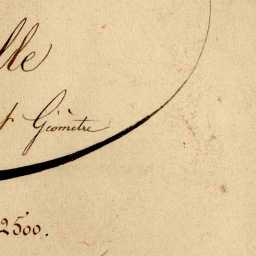 lle
t Géomètre
2500.